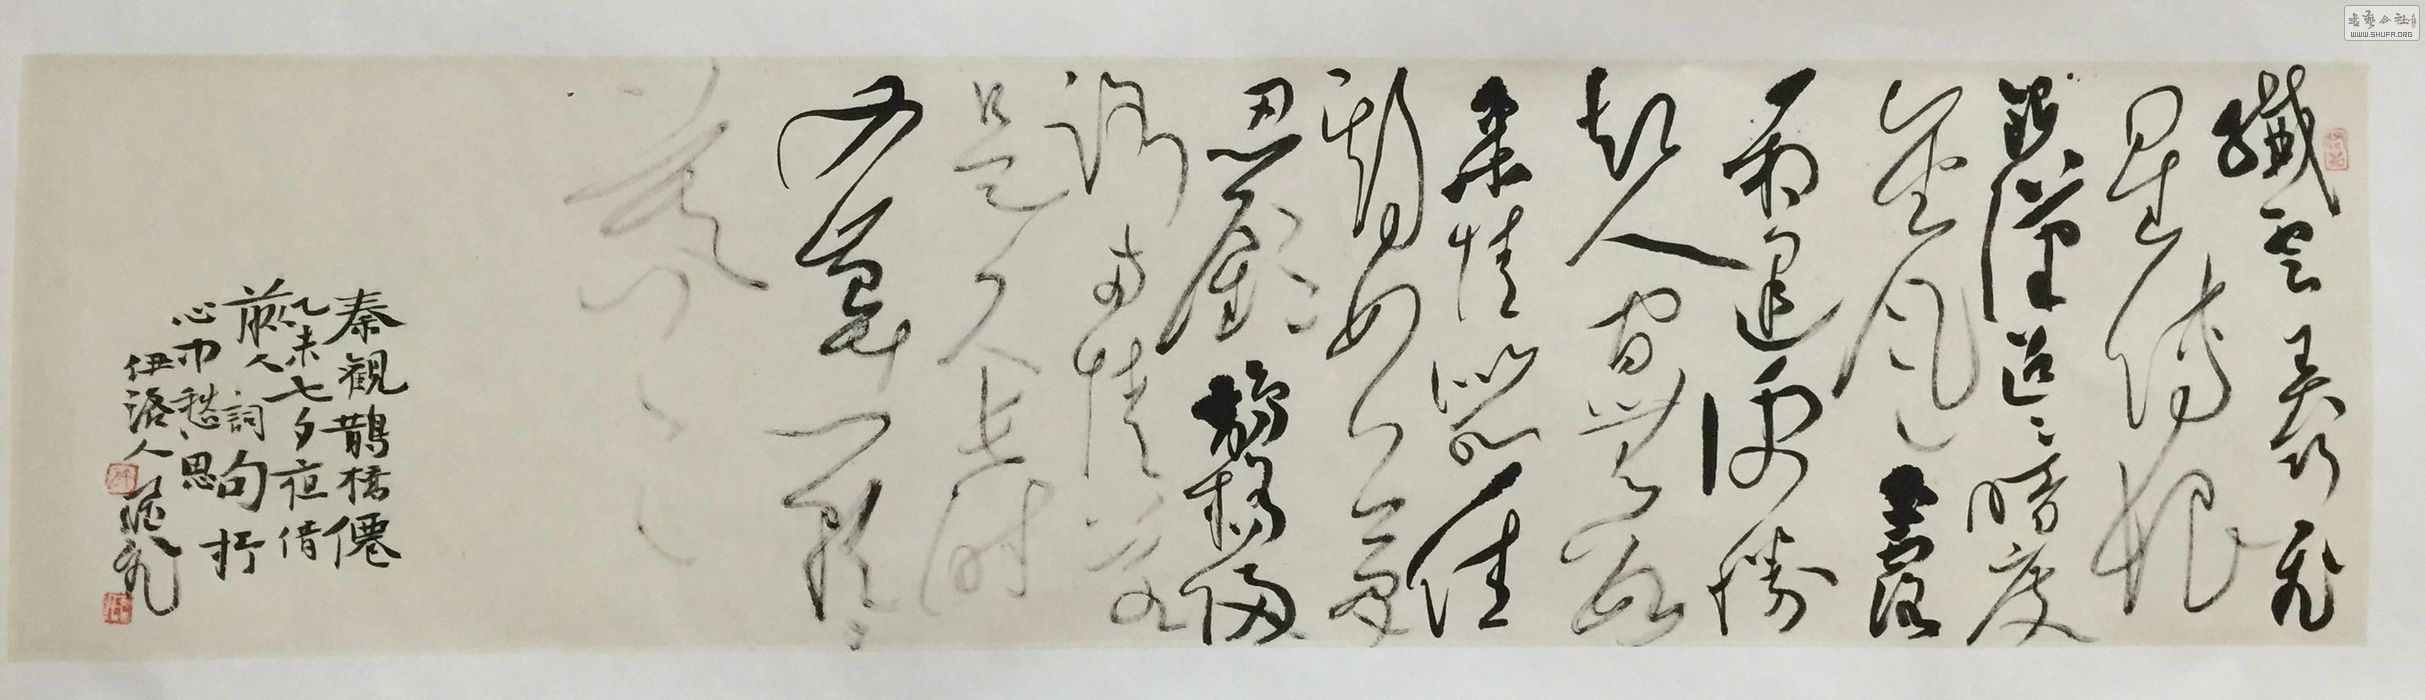 纖雲弄巧飛
星傳恨
銀漢迢迢暗度
金風玉露
一相逢便勝
却人間無數
柔情似水佳
期如夢
忍顧鵲橋歸
路兩情若
是久長時
又豈在朝朝
暮暮
秦觀鵲橋僊
乙未七夕夜借
前人詞句抒
心中愁思
伊洛人
書藝公社
WWW.SHUFA.ORG